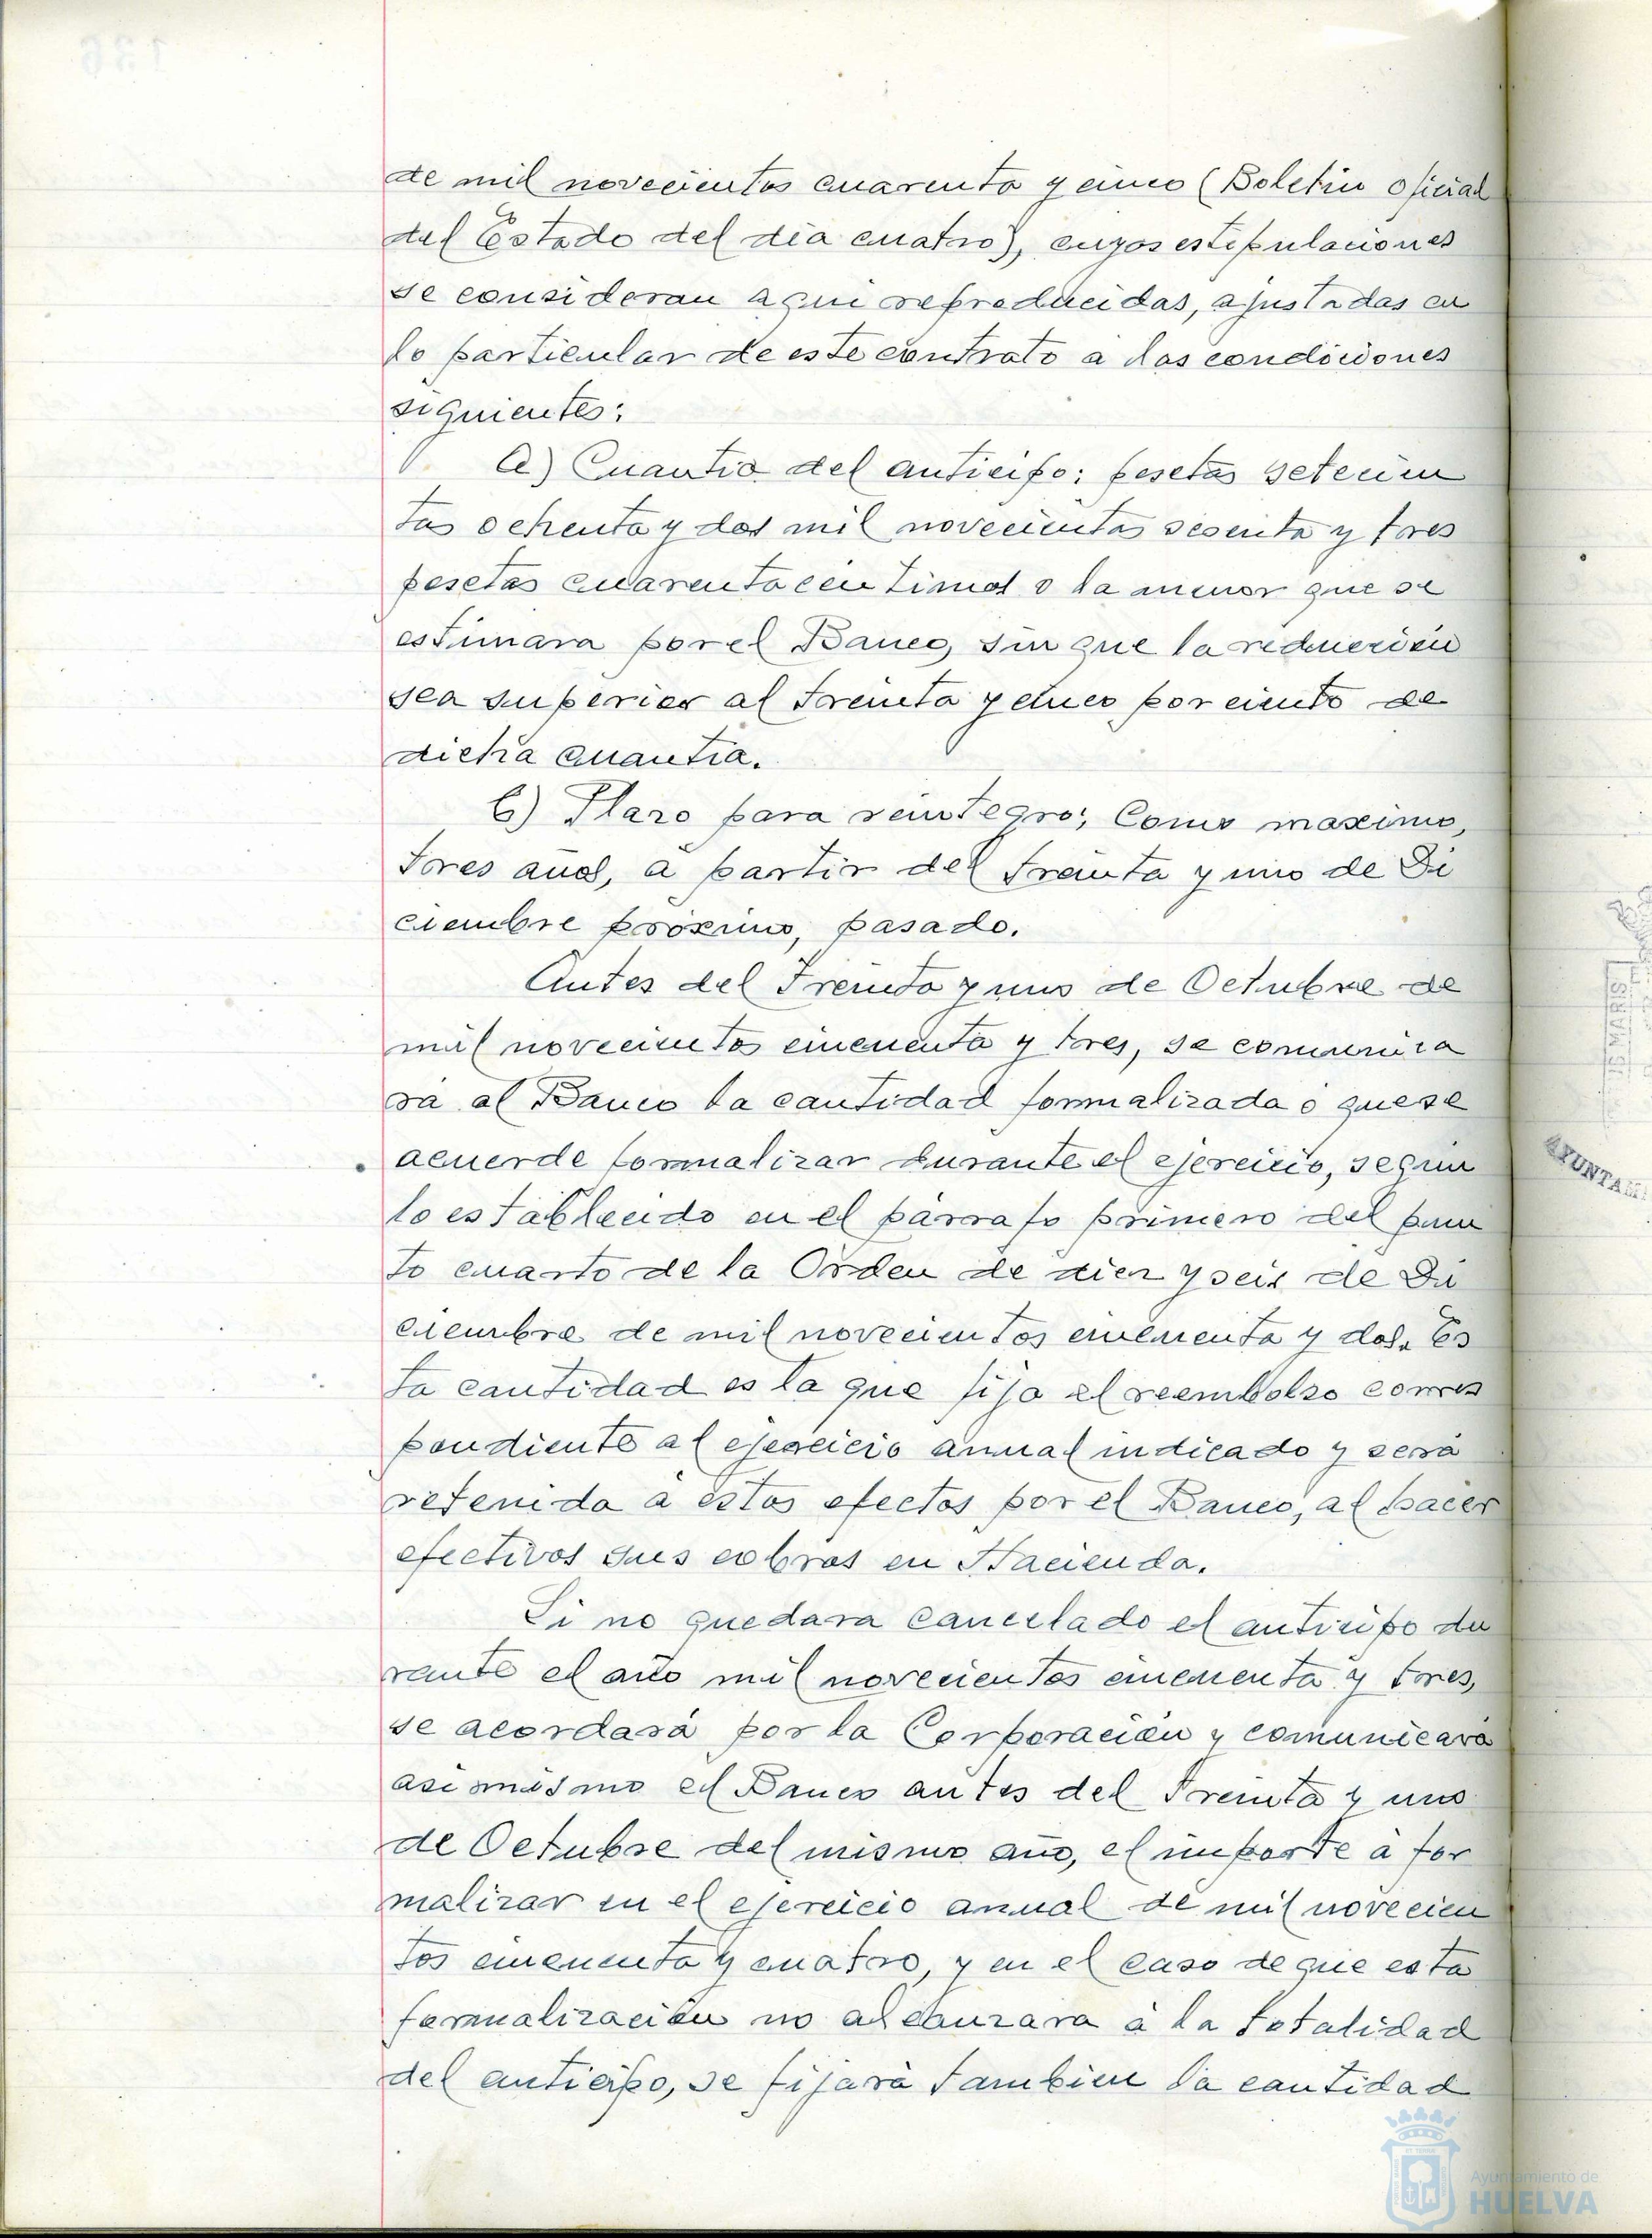 de mil novecientos cuarenta y cinco (Boletin oficial
del Estado del dia cuatro), cuyas estipulaciones
se consideran aqui reproducidas, ajustadas en
lo particular de este contrato a las condiciones
siguientes:
a) Cuantia del anticipo: pesetas setecien
tas ochenta y dos mil novecientas sesenta y tres
pesetas cuarenta centimos o la menor que se
estimara por el Banco, sin que la reducción
sea superior al treinta y cinco por ciento de
dicha cuantia.
b) Plazo para reintegro: Como maximo,
tres años, a partir del treinta y uno de Di
ciembre próximo, pasado.
Antes del treinta y uno de Octubre de
mil novecientos cincuenta y tres, se comunica
rá al Banco la cantidad formalizada o que se
acuerde formalizar durante el ejercicio, segun
lo establecido en el párrafo primero del pun
to cuarto de la Orden de diez y seis de Di
ciembre de mil novecientos cincuenta y dos. Es
ta cantidad es la que fija el reembolso corres
pondiente al ejercicio anual indicado y será
retenida a estos efectos por el Banco, al hacer
efectivos sus cobros en Hacienda.
Si no quedara cancelado el anticipo du
rante el año mil novecientos cincuenta y tres,
se acordará por la Corporación y comunicará
asi mismo al Banco antes del treinta y uno
de Octubre del mismo año, el importe a for
malizar en el ejercicio anual de mil novecien
tos cincuenta y cuatro, y en el caso de que esta
formalización no alcanzara a la totalidad
del anticipo, se fijará tambien la cantidad
136
AYUNTAM
Ayuntamiento de
HUELVA